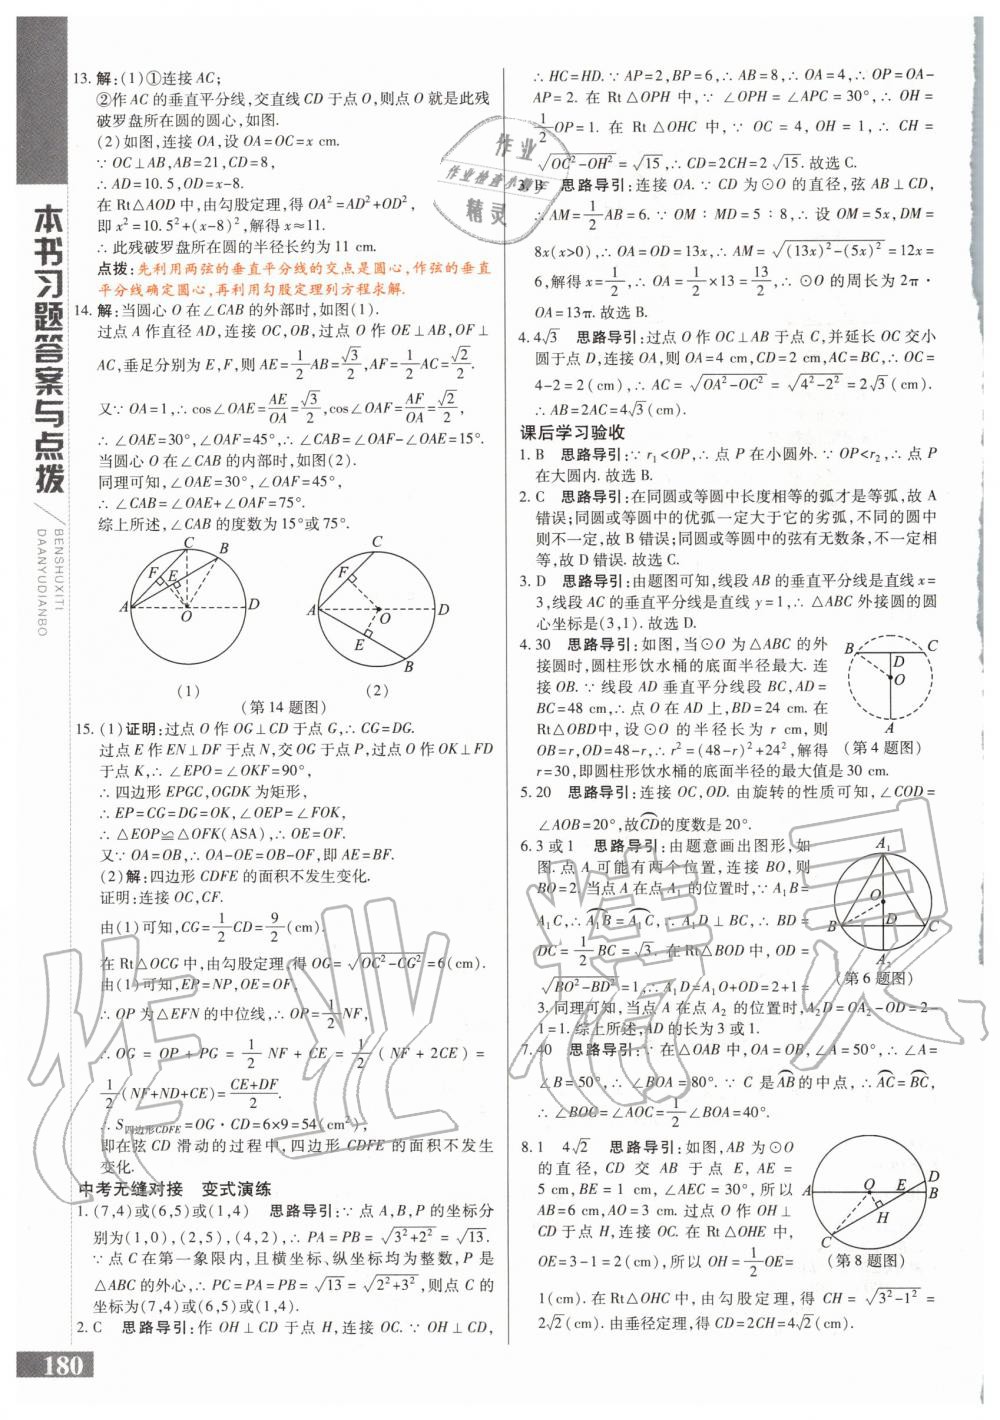 本书习题答案与点拨
BENSHUXITI
DAANYUDIANBO
13. 解:(1)①连接 AC;
②作 AC 的垂直平分线,交直线 CD 于点 O,则点 O 就是此残
破罗盘所在圆的圆心,如图.
(2)如图,连接 OA,设 OA=OC=x cm.
∵ OC⊥AB,AB=21,CD=8,
∴ AD=10.5,OD=x-8.
在 Rt△AOD 中,由勾股定理,得 OA²=AD²+OD²,
即 x²=10.5²+(x-8)²,解得 x≈11.
∴ 此残破罗盘所在圆的半径长约为 11 cm.
点拨:先利用两弦的垂直平分线的交点是圆心,作弦的垂直
平分线确定圆心,再利用勾股定理列方程求解.
14. 解:当圆心 O 在∠CAB 的外部时,如图(1).
过点 A 作直径 AD,连接 OC,OB,过点 O 作 OE⊥AB,OF⊥
AC,垂足分别为 E,F,则 AE=1/2AB=√3/2,AF=1/2AC=√2/2.
又∵ OA=1,∴ cos∠OAE=AE/OA=√3/2,cos∠OAF=AF/OA=√2/2,
∴ ∠OAE=30°,∠OAF=45°,∴ ∠CAB=∠OAF-∠OAE=15°.
当圆心 O 在∠CAB 的内部时,如图(2).
同理可知,∠OAE=30°,∠OAF=45°,
∴ ∠CAB=∠OAE+∠OAF=75°.
综上所述,∠CAB 的度数为 15°或 75°.
C B F E A O D
C F A O D E B
(1) (2)
(第 14 题图)
15. (1)证明:过点 O 作 OG⊥CD 于点 G,∴ CG=DG.
过点 E 作 EN⊥DF 于点 N,交 OG 于点 P,过点 O 作 OK⊥FD
于点 K,∴ ∠EPO=∠OKF=90°,
∴ 四边形 EPGC,OGDK 为矩形,
∴ EP=CG=DG=OK,∠OEP=∠FOK,
∴ △EOP≌△OFK(ASA),∴ OE=OF.
又∵ OA=OB,∴ OA-OE=OB-OF,即 AE=BF.
(2)解:四边形 CDFE 的面积不发生变化.
证明:连接 OC,CF.
由(1)可知,CG=1/2CD=9/2(cm).
在 Rt△OCG 中,由勾股定理,得 OG=√(OC²-CG²)=6(cm).
由(1)可知,EP=NP,OE=OF,
∴ OP 为△EFN 的中位线,∴ OP=1/2NF,
∴ OG = OP + PG = 1/2 NF + CE = 1/2 (NF + 2CE) =
1/2(NF+ND+CE)=(CE+DF)/2.
∴ S四边形CDFE=OG·CD=6×9=54(cm²),
即在弦 CD 滑动的过程中,四边形 CDFE 的面积不发生
变化.
中考无缝对接 变式演练
1. (7,4)或(6,5)或(1,4) 思路导引:∵ 点 A,B,P 的坐标分
别为(1,0),(2,5),(4,2),∴ PA=PB=√(3²+2²)=√13.
∵ 点 C 在第一象限内,且横坐标、纵坐标均为整数,P 是
△ABC 的外心,∴ PC=PA=PB=√13=√(2²+3²),则点 C 的
坐标为(7,4)或(6,5)或(1,4).
2. C 思路导引:作 OH⊥CD 于点 H,连接 OC. ∵ OH⊥CD,
180
∴ HC=HD. ∵ AP=2,BP=6,∴ AB=8,∴ OA=4,∴ OP=OA-
AP=2. 在 Rt△OPH 中,∵ ∠OPH=∠APC=30°,∴ OH=
1/2OP=1. 在 Rt△OHC 中,∵ OC=4,OH=1,∴ CH=
√(OC²-OH²)=√15,∴ CD=2CH=2√15. 故选 C.
3. B 思路导引:连接 OA. ∵ CD 为⊙O 的直径,弦 AB⊥CD,
∴ AM=1/2AB=6. ∵ OM∶MD=5∶8,∴ 设 OM=5x,DM=
8x(x>0),∴ OA=OD=13x,∴ AM=√((13x)²-(5x)²)=12x=
6,解得 x=1/2,∴ OA=1/2×13=13/2,∴ ⊙O 的周长为 2π·
OA=13π. 故选 B.
4. 4√3 思路导引:过点 O 作 OC⊥AB 于点 C,并延长 OC 交小
圆于点 D,连接 OA,则 OA=4 cm,CD=2 cm,AC=BC,∴ OC=
4-2=2(cm),∴ AC=√(OA²-OC²)=√(4²-2²)=2√3(cm).
∴ AB=2AC=4√3(cm).
课后学习验收
1. B 思路导引:∵ r₁<OP,∴ 点 P 在小圆外. ∵ OP<r₂,∴ 点 P
在大圆内. 故选 B.
2. C 思路导引:在同圆或等圆中长度相等的弧才是等弧,故 A
错误;同圆或等圆中的优弧一定大于它的劣弧,不同的圆中
则不一定,故 B 错误;同圆或等圆中的弦有无数条,不一定相
等,故 D 错误. 故选 C.
3. D 思路导引:由题图可知,线段 AB 的垂直平分线是直线 x=
3,线段 AC 的垂直平分线是直线 y=1,∴ △ABC 外接圆的圆
心坐标是(3,1). 故选 D.
4. 30 思路导引:如图,当⊙O 为△ABC 的外
接圆时,圆柱形饮水桶的底面半径最大. 连
接 OB. ∵ 线段 AD 垂直平分线段 BC,AD=
BC=48 cm,∴ 点 O 在 AD 上,BD=24 cm. 在
Rt△OBD 中,设⊙O 的半径长为 r cm,则
OB=r,OD=48-r,∴ r²=(48-r)²+24²,解得
r=30,即圆柱形饮水桶的底面半径的最大值是 30 cm.
B C D O A
(第 4 题图)
5. 20 思路导引:连接 OC,OD. 由旋转的性质可知,∠COD=
∠AOB=20°,故⌒CD的度数是 20°.
6. 3 或 1 思路导引:由题意画出图形,如
图. 点 A 可能有两个位置,连接 BO,则
BO=2. 当点 A 在点 A₁ 的位置时,∵ A₁B=
A₁C,∴ ⌒A₁B=⌒A₁C,∴ A₁D⊥BC,∴ BD=
DC=1/2BC=√3. 在 Rt△BOD 中,OD=
√(BO²-BD²)=1,∴ A₁D=A₁O+OD=2+1=
3. 同理可知,当点 A 在点 A₂ 的位置时,A₂D=OA₂-OD=2-
1=1. 综上所述,AD 的长为 3 或 1.
A₁ O B D C A₂
(第 6 题图)
7. 40 思路导引:∵ 在△OAB 中,OA=OB,∠A=50°,∴ ∠A=
∠B=50°,∴ ∠BOA=80°. ∵ C 是⌒AB的中点,∴ ⌒AC=⌒BC,
∴ ∠BOC=∠AOC=1/2∠BOA=40°.
8. 1 4√2 思路导引:如图,AB 为⊙O
的直径,CD 交 AB 于点 E,AE=
5 cm,BE=1 cm,∠AEC=30°,所以
AB=6 cm,AO=3 cm. 过点 O 作 OH⊥
CD 于点 H,连接 OC. 在 Rt△OHE 中,
OE=3-1=2(cm),所以 OH=1/2OE=
1(cm). 在 Rt△OHC 中,由勾股定理,得 CH=√(3²-1²)=
2√2(cm). 由垂径定理,得 CD=2CH=4√2(cm).
D O E A B H C
(第 8 题图)
作业
精灵
作业精灵